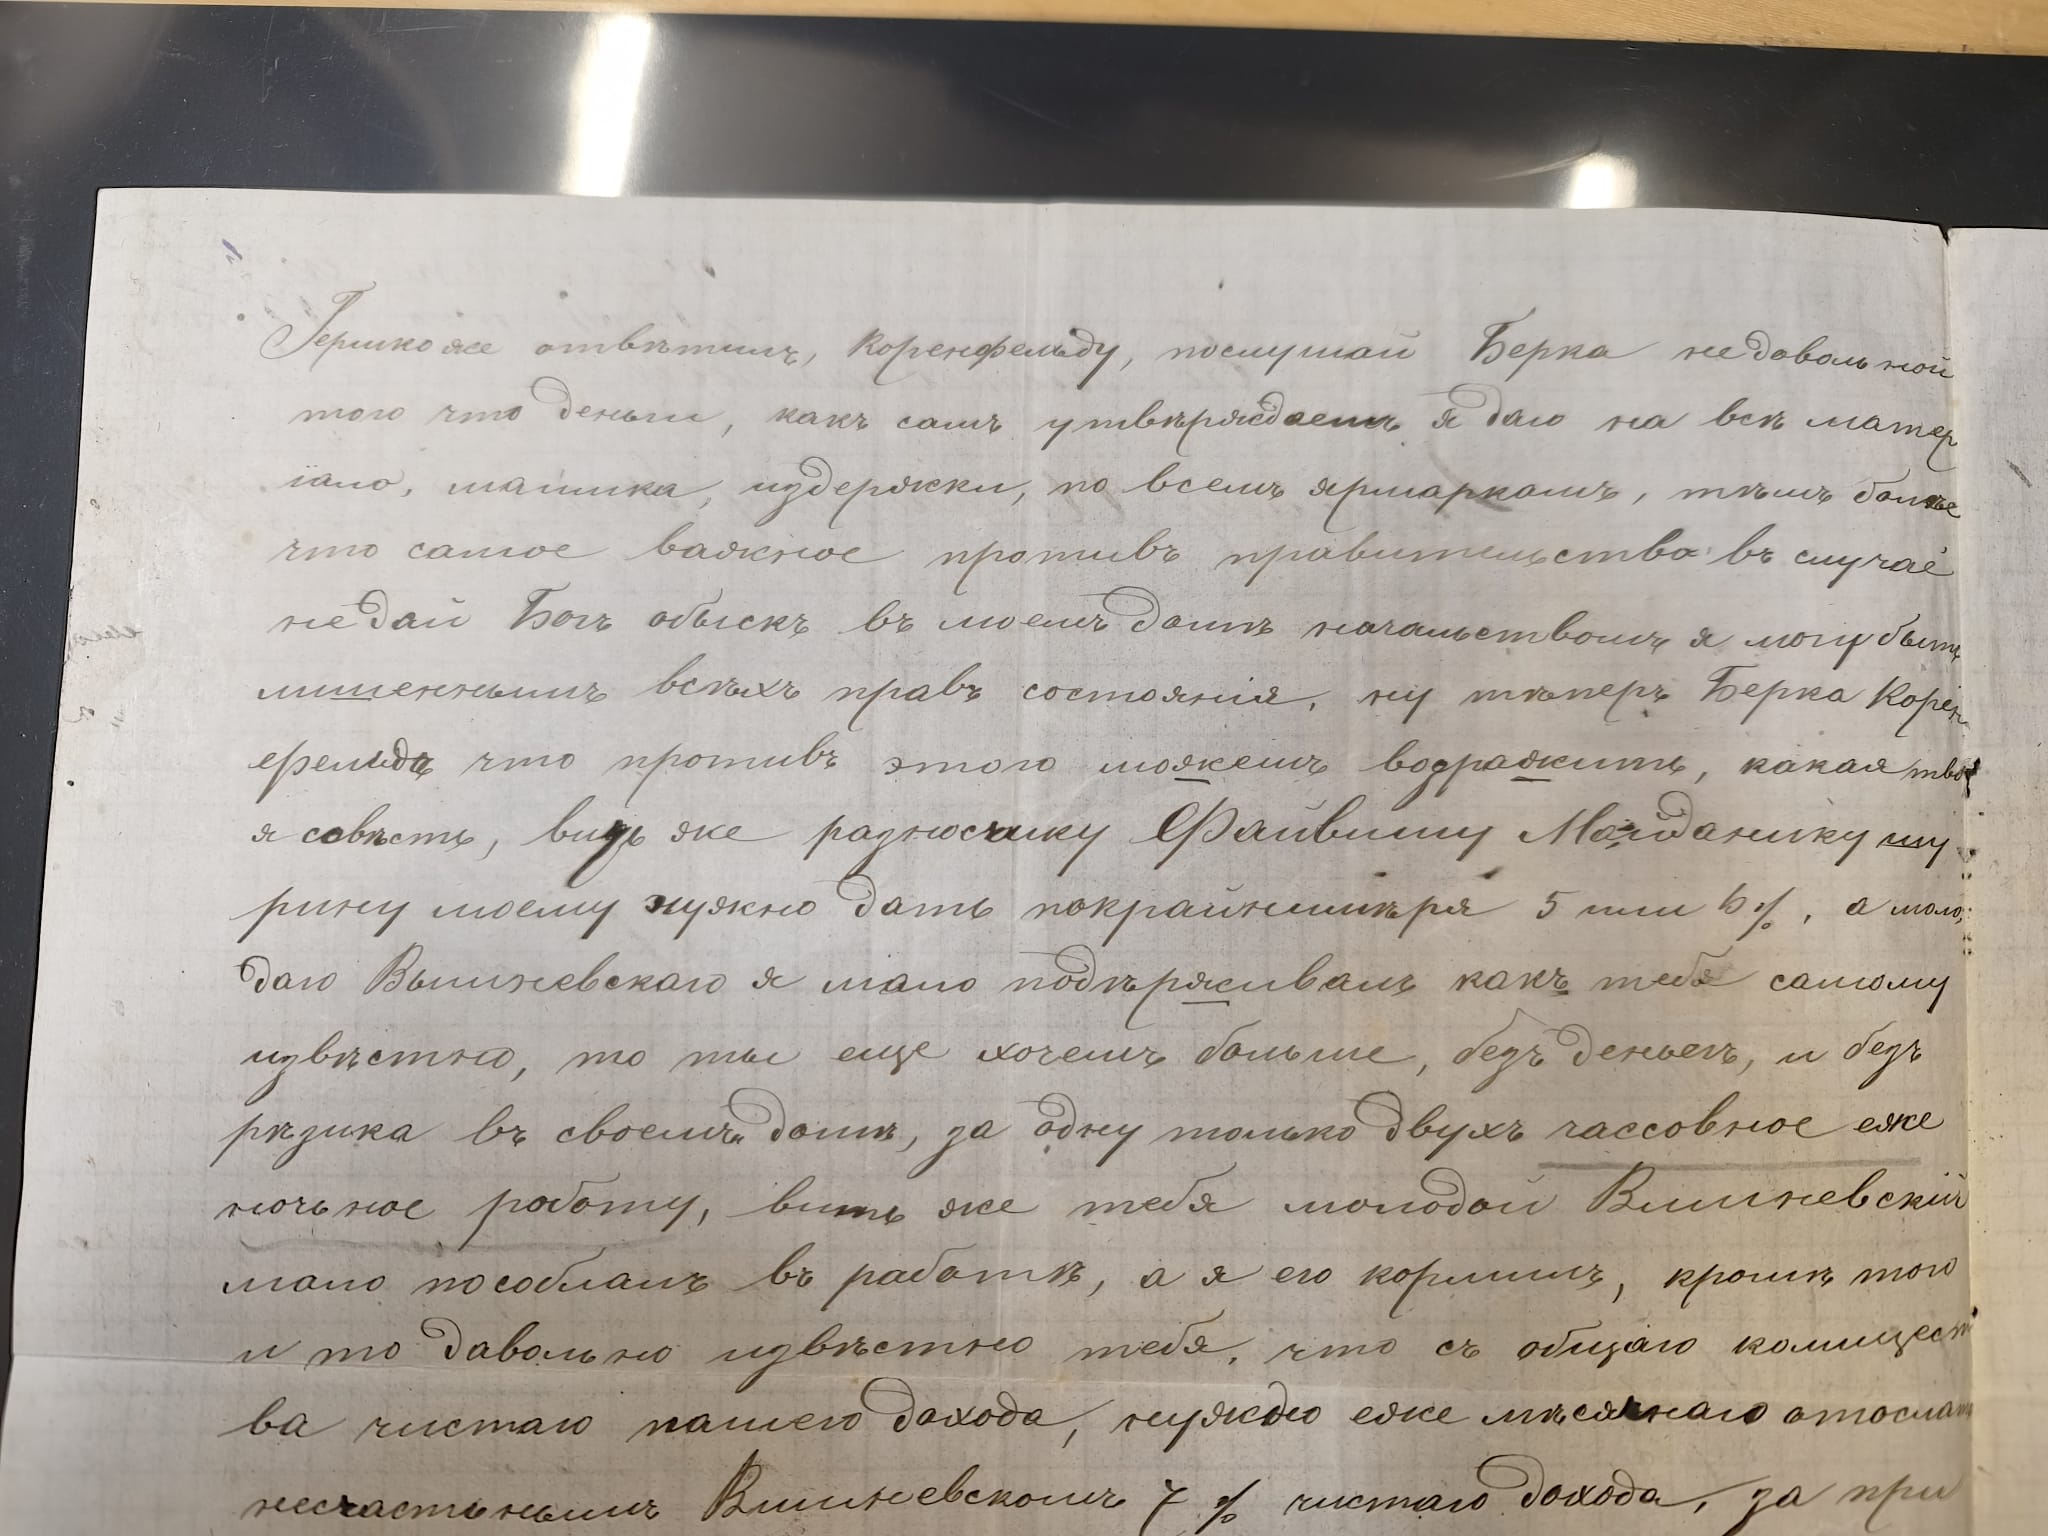 Гершко же отвѣтилъ, Коренфельду, послушай Берка недовольной
того что деньги, какъ самъ утвѣрждаешъ я даю на всѣ матер
іало, машика, издержки, по всемъ ярмаркамъ, тѣмъ болѣе
что самое важное противъ правительства въ случаѣ
недай Богъ обыскъ въ моемъ домѣ начальствомъ я могу быть
лишеннымъ всѣхъ правъ состоянія, ну тѣперъ Берка Корен
фельдъ что противъ этого можешъ возражить, какая тво
я совѣсть, видь же разносчику Файвишу Майданику шу
рину моему нужно дать покрайнимѣря 5 или 6%, а моло
даго Вышневскаго я мало подѣрживалъ какъ тебя самому
извѣстно, то ты еще хочешъ больше, безъ деньегъ, и безъ
рѣзика въ своемъ домѣ, за одну только двухъ чассовное еже
ночьное работу, вить же тебя молодой Вишневскій
мало пособлалъ въ работѣ, а я его кормилъ, кромѣ того
и то давольно извѣстно тебя, что съ общаго комищест
ва чистаго нашего дохода, нуждно еже мѣсячнаго отослать
несчастьнымъ Вишневскомъ 7% чистаго дохода, за при